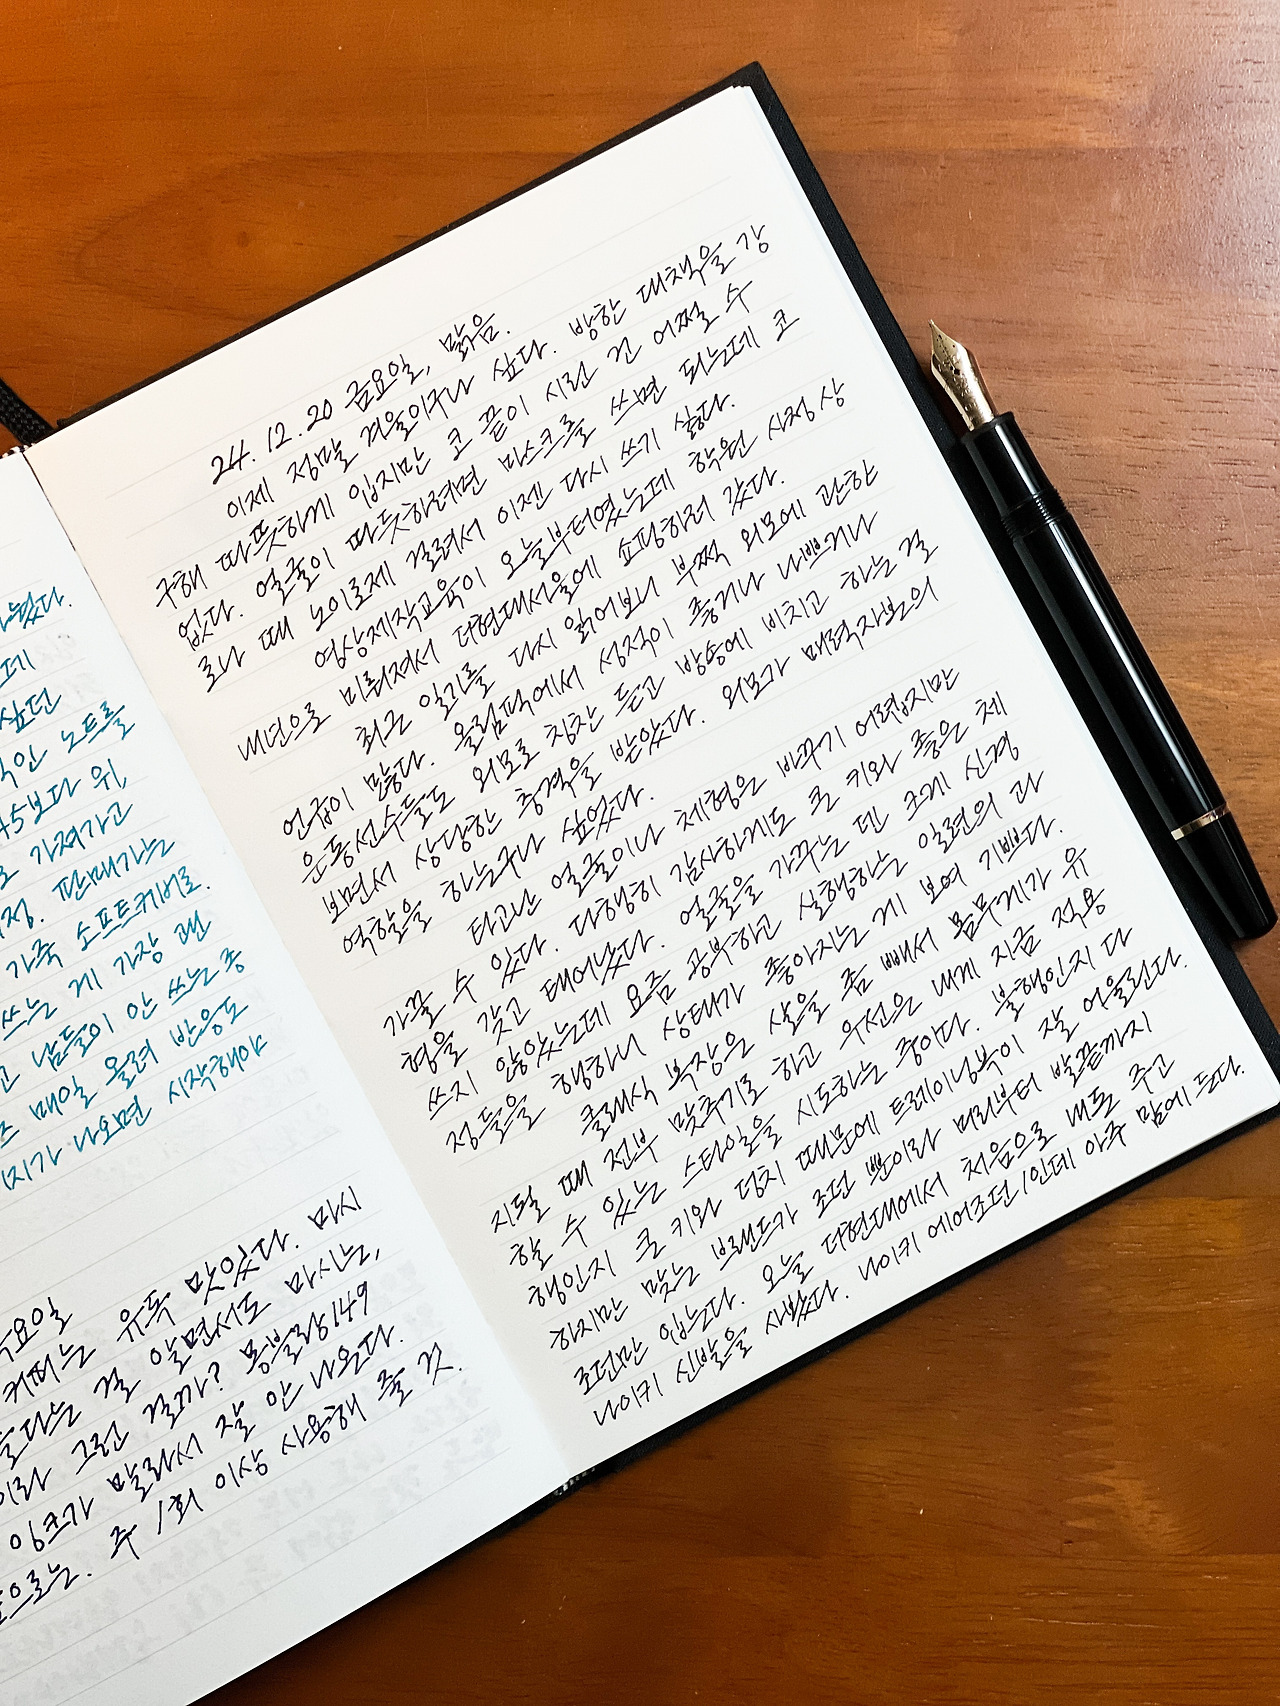 나눴다.
데
싶던
인 노트를
45보다 위,
로 가져가고
정. 판매가는
가죽 소프트케이로.
쓰는 게 가장 랜
고 남들이 안 쓰는 종
즈 매일 올려 반응도
지가 나오면 시작해야
목요일
커피는 유독 맛있다. 마시
든다는 걸 알면서도 마시는,
이라 그런 걸까? 몽블랑149
잉크가 말라서 잘 안 나온다.
앞으로는. 주 1회 이상 사용해 줄 것.
24. 12. 20 금요일, 맑음.
이제 정말 겨울이구나 싶다. 방한 대책을 강
구해 따뜻하게 입지만 코 끝이 시린 건 어쩔 수
없다. 얼굴이 따뜻하려면 마스크를 쓰면 되는데 코
로나 때 노이로제 걸려서 이젠 다시 쓰기 싫다.
영상제작교육이 오늘부터였는데 학원 사정상
내년으로 미뤄져서 더현대서울에 쇼핑하러 갔다.
최근 일기를 다시 읽어보니 부쩍 외모에 관한
언급이 많다. 올림픽에서 성적이 좋거나 나쁘거나
운동선수들도 외모로 칭찬 듣고 방송에 비치고 하는 걸
보면서 상당한 충격을 받았다. 외모가 매력자본의
역할을 하는구나 싶었다.
타고난 얼굴이나 체형은 바꾸기 어렵지만
가꿀 수 있다. 다행히 감사하게도 큰 키와 좋은 체
형을 갖고 태어났다. 얼굴을 가꾸는 덴 크게 신경
쓰지 않았는데 요즘 공부하고 실행하는 일련의 과
정들을 행하니 상태가 좋아지는 게 보여 기쁘다.
클래식 복장은 살을 좀 빼서 몸무게가 유
지될 때 전부 맞추기로 하고 우선은 내게 지금 적용
할 수 있는 스타일을 시도하는 중이다. 불행인지 다
행인지 큰 키와 덩치 때문에 트레이닝복이 잘 어울린다.
하지만 맞는 브랜드가 조던 뿐이라 머리부터 발끝까지
조던만 입는다. 오늘 더현대에서 처음으로 내돈 주고
나이키 신발을 사봤다. 나이키 에어조던1인데 아주 맘에 든다.